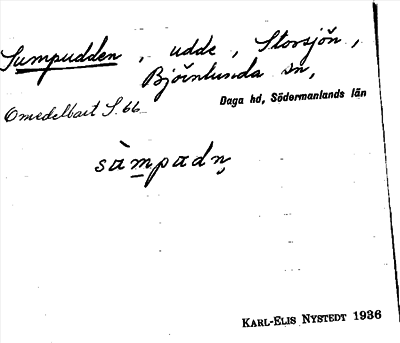 Sumpudden, udde, Storsjön,
Björnlunda sn,
Omedelbart S. 66
Daga hd, Södermanlands län
sàmpadņ
KARL-ELIS NYSTEDT 1936